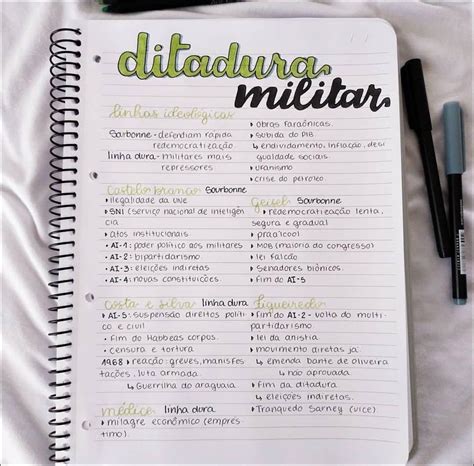 ditadura
militar
linhas ideológicas
Sorbonne - defendiam rápida
redemocratização
linha dura - militares mais
repressores
Castelo branco Sourbonne
▸ ilegalidade da UNE
▸ SNI (serviço nacional de inteligên
cia)
▸ atos institucionais
▸ AI-1: poder político aos militares
▸ AI-2: bipartidarismo
▸ AI-3: eleições indiretas
▸ AI-4: novas constituições
costa e silva linha dura
▸ AI-5: suspensão direitos políti
co e civil
• fim do Habbeas corpus.
• censura e tortura.
1968 ▸ reação: greves, manisfes
tações, luta armada.
↳ Guerrilha do araguaia
médice: linha dura
▸ milagre econômico (emprés
timo).
▸ obras faraônicas.
▸ subida do PIB
↳ endividamento, inflação, desi
gualdade sociais
▸ uranismo
▸ crise do petróleo
Geisel: Sourbonne
▸ redemocratização lenta,
segura e gradual
▸ praalcool
▸ MOB (maioria do congresso)
▸ lei falcão
▸ Senadores biônicos.
▸ fim do AI-5
figueiredo:
▸ fim do AI-2 - volta do multi-
partidarismo
▸ lei da anistia
▸ movimento diretas já.
↳ emenda Dante de Oliveira
↳ não aprovada
▸ fim da ditadura
↳ eleições indiretas.
▸ Tranquedo Sarney (vice)